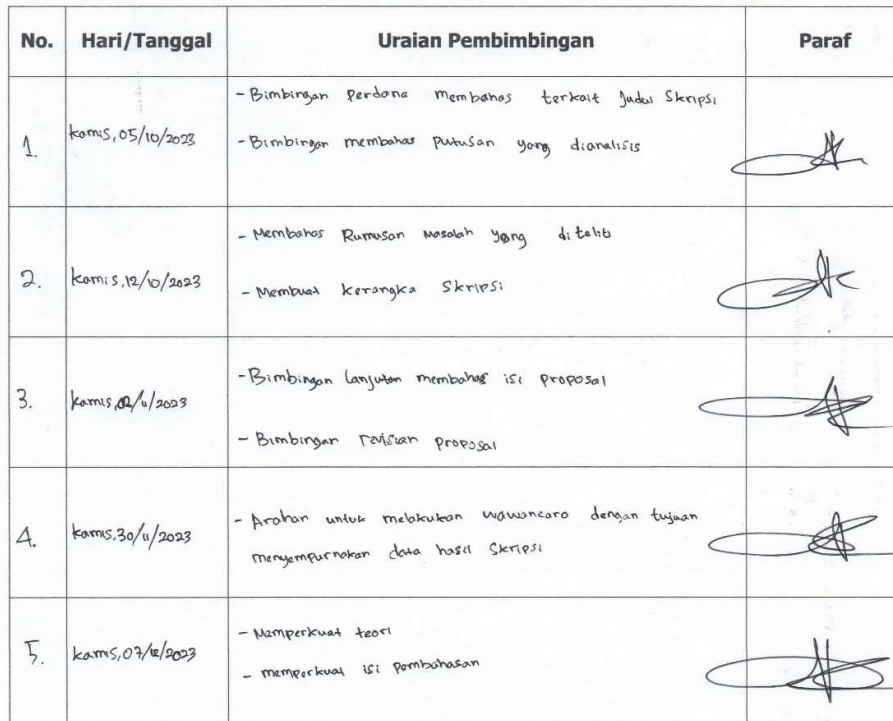 No. Hari/Tanggal Uraian Pembimbingan Paraf
1. Kamis, 05/10/2023
- Bimbingan perdana membahas terkait Judul Skripsi
- Bimbingan membahas putusan yang dianalisis
2. Kamis, 12/10/2023
- Membahas Rumusan Masalah yang diteliti
- Membuat kerangka Skripsi
3. Kamis, 02/11/2023
- Bimbingan lanjutan membahas isi proposal
- Bimbingan revisian proposal
4. Kamis, 30/11/2023
- Arahan untuk melakukan wawancara dengan tujuan
menyempurnakan data hasil Skripsi
5. Kamis, 07/12/2023
- Memperkuat teori
- memperkuat isi pembahasan